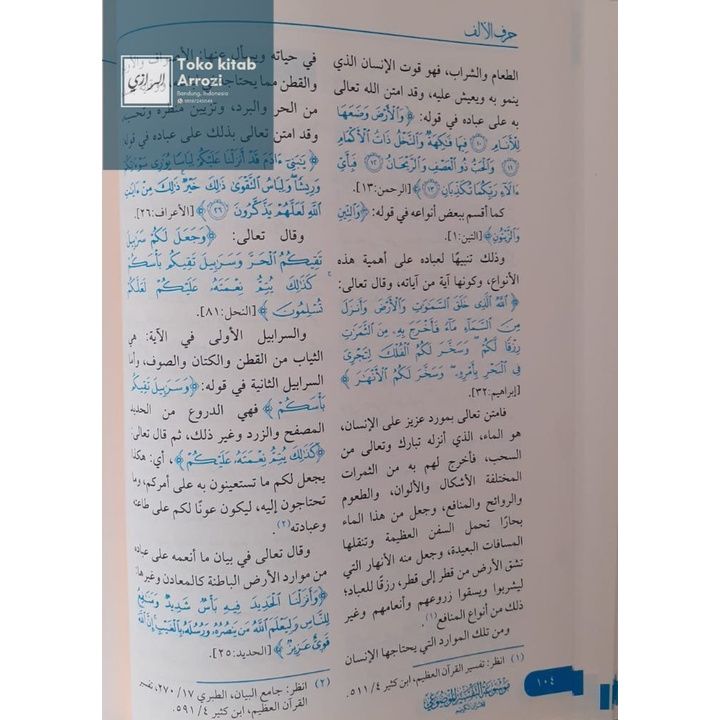 حرف الألف
الطعام والشراب، فهو قوت الإنسان الذي
ينمو به ويعيش عليه، وقد امتن الله تعالى
به على عباده في قوله: ﴿وَٱلْأَرْضَ وَضَعَهَا
لِلْأَنَامِ ۝١٠ فِيهَا فَٰكِهَةٌ وَٱلنَّخْلُ ذَاتُ ٱلْأَكْمَامِ
۝١١ وَٱلْحَبُّ ذُو ٱلْعَصْفِ وَٱلرَّيْحَانُ ۝١٢ فَبِأَىِّ
ءَالَآءِ رَبِّكُمَا تُكَذِّبَانِ ۝١٣﴾ [الرحمن:١٣].
كما أقسم ببعض أنواعه في قوله: ﴿وَٱلتِّينِ
وَٱلزَّيْتُونِ﴾ [التين:١].
وذلك تنبيهًا لعباده على أهمية هذه
الأنواع، وكونها آية من آياته، وقال تعالى:
﴿ٱللَّهُ ٱلَّذِى خَلَقَ ٱلسَّمَٰوَٰتِ وَٱلْأَرْضَ وَأَنزَلَ
مِنَ ٱلسَّمَآءِ مَآءً فَأَخْرَجَ بِهِۦ مِنَ ٱلثَّمَرَٰتِ
رِزْقًا لَّكُمْ وَسَخَّرَ لَكُمُ ٱلْفُلْكَ لِتَجْرِىَ
فِى ٱلْبَحْرِ بِأَمْرِهِۦ وَسَخَّرَ لَكُمُ ٱلْأَنْهَٰرَ﴾
[إبراهيم:٣٢].
فامتن تعالى بمورد عزيز على الإنسان،
هو الماء، الذي أنزله تبارك وتعالى من
السحب، فأخرج لهم به من الثمرات
المختلفة الأشكال والألوان، والطعوم
والروائح والمنافع، وجعل من هذا الماء
بحارًا تحمل السفن العظيمة وتنقلها
المسافات البعيدة، وجعل منه الأنهار التي
تشق الأرض من قطر إلى قطر، رزقًا للعباد؛
ليشربوا ويسقوا زروعهم وأنعامهم وغير
ذلك من أنواع المنافع(١).
ومن تلك الموارد التي يحتاجها الإنسان
(١) انظر: تفسير القرآن العظيم، ابن كثير ٤/ ٥١١.
في حياته
والقطن مما يحتاجه
من الحر والبرد، وتزيين منظره
وقد امتن تعالى بذلك على عباده في قوله
﴿يَٰبَنِىٓ ءَادَمَ قَدْ أَنزَلْنَا عَلَيْكُمْ لِبَاسًا يُوَٰرِى سَوْءَٰتِكُمْ
وَرِيشًا وَلِبَاسُ ٱلتَّقْوَىٰ ذَٰلِكَ خَيْرٌ ذَٰلِكَ مِنْ ءَايَٰتِ
ٱللَّهِ لَعَلَّهُمْ يَذَّكَّرُونَ ۝٢٦﴾ [الأعراف:٢٦].
وقال تعالى: ﴿وَجَعَلَ لَكُمْ سَرَٰبِيلَ
تَقِيكُمُ ٱلْحَرَّ وَسَرَٰبِيلَ تَقِيكُم بَأْسَكُمْ
كَذَٰلِكَ يُتِمُّ نِعْمَتَهُۥ عَلَيْكُمْ لَعَلَّكُمْ
تُسْلِمُونَ﴾ [النحل:٨١].
والسرابيل الأولى في الآية: هي
الثياب من القطن والكتان والصوف، وأما
السرابيل الثانية في قوله: ﴿وَسَرَٰبِيلَ تَقِيكُم
بَأْسَكُمْ﴾ فهي الدروع من الحديد
المصفح والزرد وغير ذلك، ثم قال تعالى:
﴿كَذَٰلِكَ يُتِمُّ نِعْمَتَهُۥ عَلَيْكُمْ﴾، أي: هكذا
يجعل لكم ما تستعينون به على أمركم، وما
تحتاجون إليه، ليكون عونًا لكم على طاعته
وعبادته(٢).
وقال تعالى في بيان ما أنعمه على عباده
من موارد الأرض الباطنة كالمعادن وغيرها:
﴿وَأَنزَلْنَا ٱلْحَدِيدَ فِيهِ بَأْسٌ شَدِيدٌ وَمَنَٰفِعُ
لِلنَّاسِ وَلِيَعْلَمَ ٱللَّهُ مَن يَنصُرُهُۥ وَرُسُلَهُۥ بِٱلْغَيْبِ إِنَّ ٱللَّهَ
قَوِىٌّ عَزِيزٌ﴾ [الحديد:٢٥].
(٢) انظر: جامع البيان، الطبري ١٧/ ٢٧٠، تفسير
القرآن العظيم، ابن كثير ٤/ ٥٩١.
١٠٤
موسوعة التفسير الموضوعي
للقرآن الكريم
الرازي
Toko kitab
Arrozi
Bandung, Indonesia